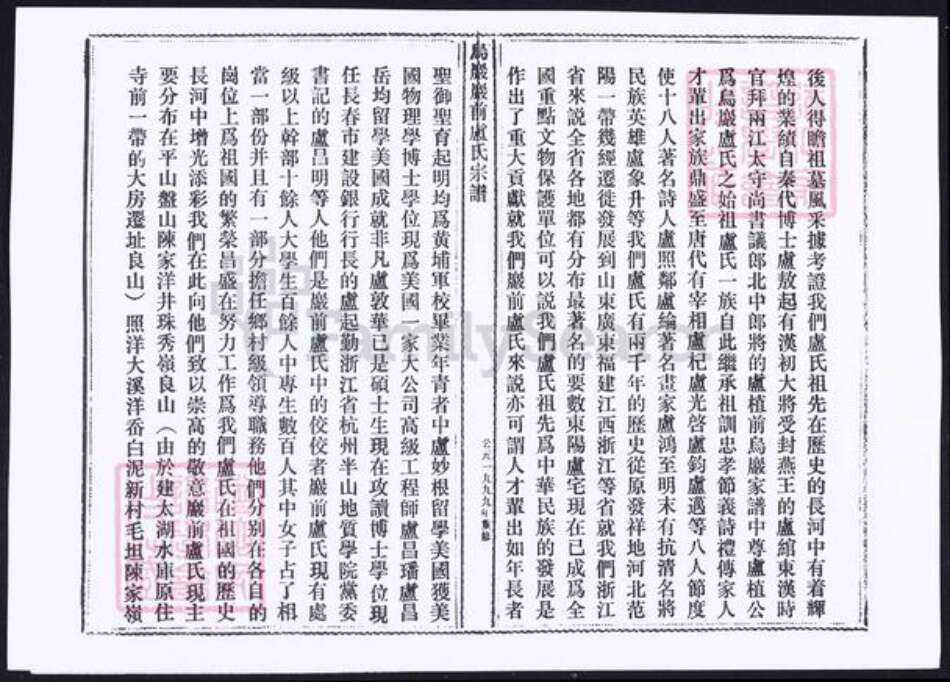 後人得瞻祖墓風采據考證我們盧氏祖先在歷史的長河中有着輝
煌的業績自秦代博士盧敖起有漢初大將受封燕王的盧綰東漢時
官拜兩江太守尚書議郎北中郎將的盧植前烏巖家譜中尊盧植公
爲烏巖盧氏之始祖盧氏一族自此繼承祖訓忠孝節義詩禮傳家人
才輩出家族鼎盛至唐代有宰相盧杞盧光啓盧鈞盧邁等八人節度
使十八人著名詩人盧照鄰盧綸著名畫家盧鴻至明末有抗清名將
民族英雄盧象升等我們盧氏有兩千年的歷史從原發祥地河北范
陽一帶幾經遷徙發展到山東廣東福建江西浙江等省就我們浙江
省來説全省各地都有分布最著名的要數東陽盧宅現在已成爲全
國重點文物保護單位可以説我們盧氏祖先爲中華民族的發展是
作出了重大貢獻就我們巖前盧氏來説亦可謂人才輩出如年長者
烏巖巖前盧氏宗譜
公元一九九九年集修
聖御聖育起明均爲黄埔軍校畢業年青者中盧妙根留學美國獲美
國物理學博士學位現爲美國一家大公司高級工程師盧昌璠盧昌
岳均留學美國成就非凡盧敦華已是碩士生現在攻讀博士學位現
任長春市建設銀行行長的盧起勤浙江省杭州半山地質學院黨委
書記的盧昌明等人他們是巖前盧氏中的佼佼者巖前盧氏現有處
級以上幹部十餘人大學生百餘人中專生數百人其中女子占了相
當一部份并且有一部分擔任鄉村級領導職務他們分别在各自的
崗位上爲祖國的繁榮昌盛在努力工作爲我們盧氏在祖國的歷史
長河中增光添彩我們在此向他們致以崇高的敬意巖前盧氏現主
要分布在平山盤山陳家洋井珠秀嶺良山（由於建太湖水庫原住
寺前一帶的大房遷址良山）照洋大溪洋岙白泥新村毛坦陳家嶺
FamilySearch